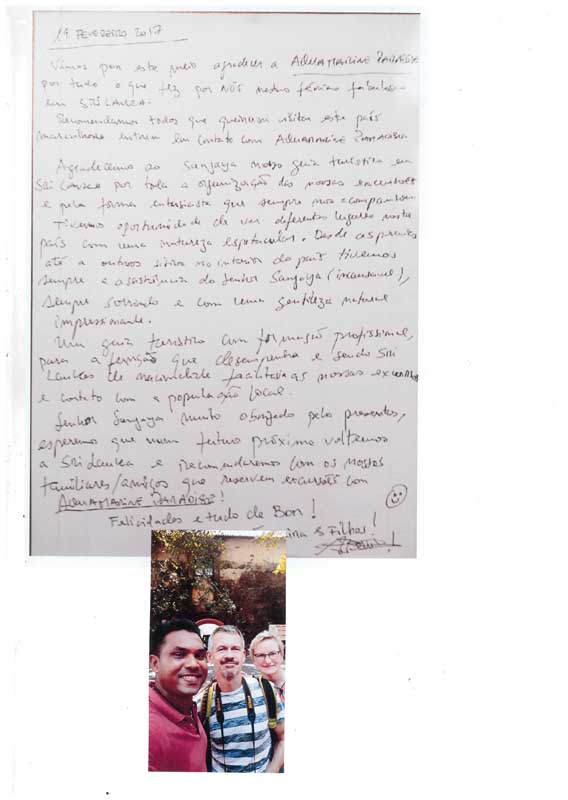 19 FEVEREIRO 2017
Vimos por este meio agradecer a AQUAMARINE PARADISE
por tudo o que fez por NÓS nestas férias fabulosas
em SRI LANKA.
Recomendamos todos que queiram visitar este país
maravilhoso entrem em contato com AQUAMARINE PARADISE
Agradecemos ao Sanjaya nosso guia turístico em
Sri Lanka por toda a organização das nossas excursões
e pela forma entusiasta que sempre nos acompanhou
Tivemos oportunidade de ver diferentes lugares neste
país com uma natureza espetacular. Desde as
até a outros sítios no interior do país tivemos
sempre a assistência do Senhor Sanjaya (incansavel),
sempre sorrindo e com uma gentileza natural
impressionante.
Um guia turistico com formação profissional,
para a função que desempenha e sendo Sri
Lankes de nacionalidade facilitava as nossas excursões
e contato com a população local.
Senhor Sanjaya muito obrigado pelos presentes,
esperemos que num futuro próximo voltemos
a Sri Lanka e recomendaremos com os nossos
familiares/amigos que reservem excursões com
AQUAMARINE PARADISE!
Felicidades e tudo de Bom!
& Filhos!